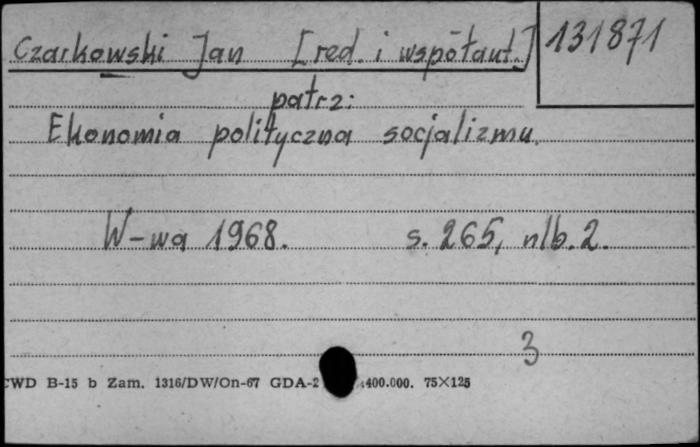 Czarkowski Jan [red. i współaut.] 131871
patrz:
Ekonomia polityczna socjalizmu.
W-wa 1968. s. 265, nlb. 2.
3
CWD B-15 b Zam. 1316/DW/On-67 GDA-2 400.000. 75×125